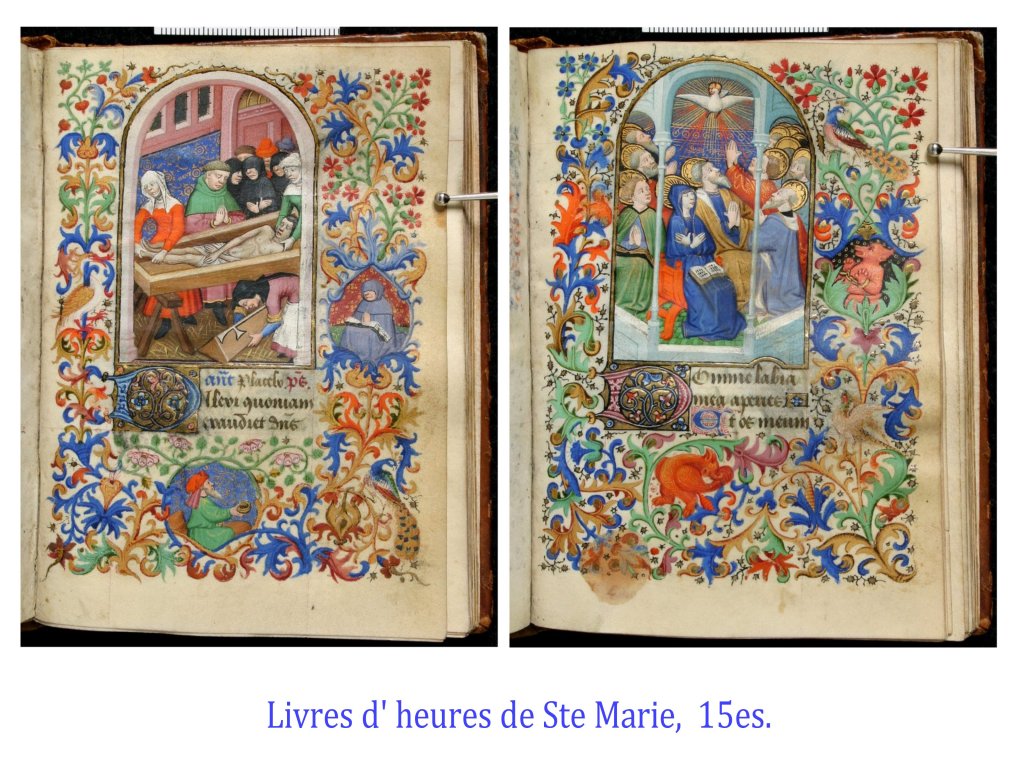 Añt Placebo pS̃.
Dilexi quoniam
exaudiet dñs
Domine labia
mea aperies
Et os meum
Livres d' heures de Ste Marie, 15es.